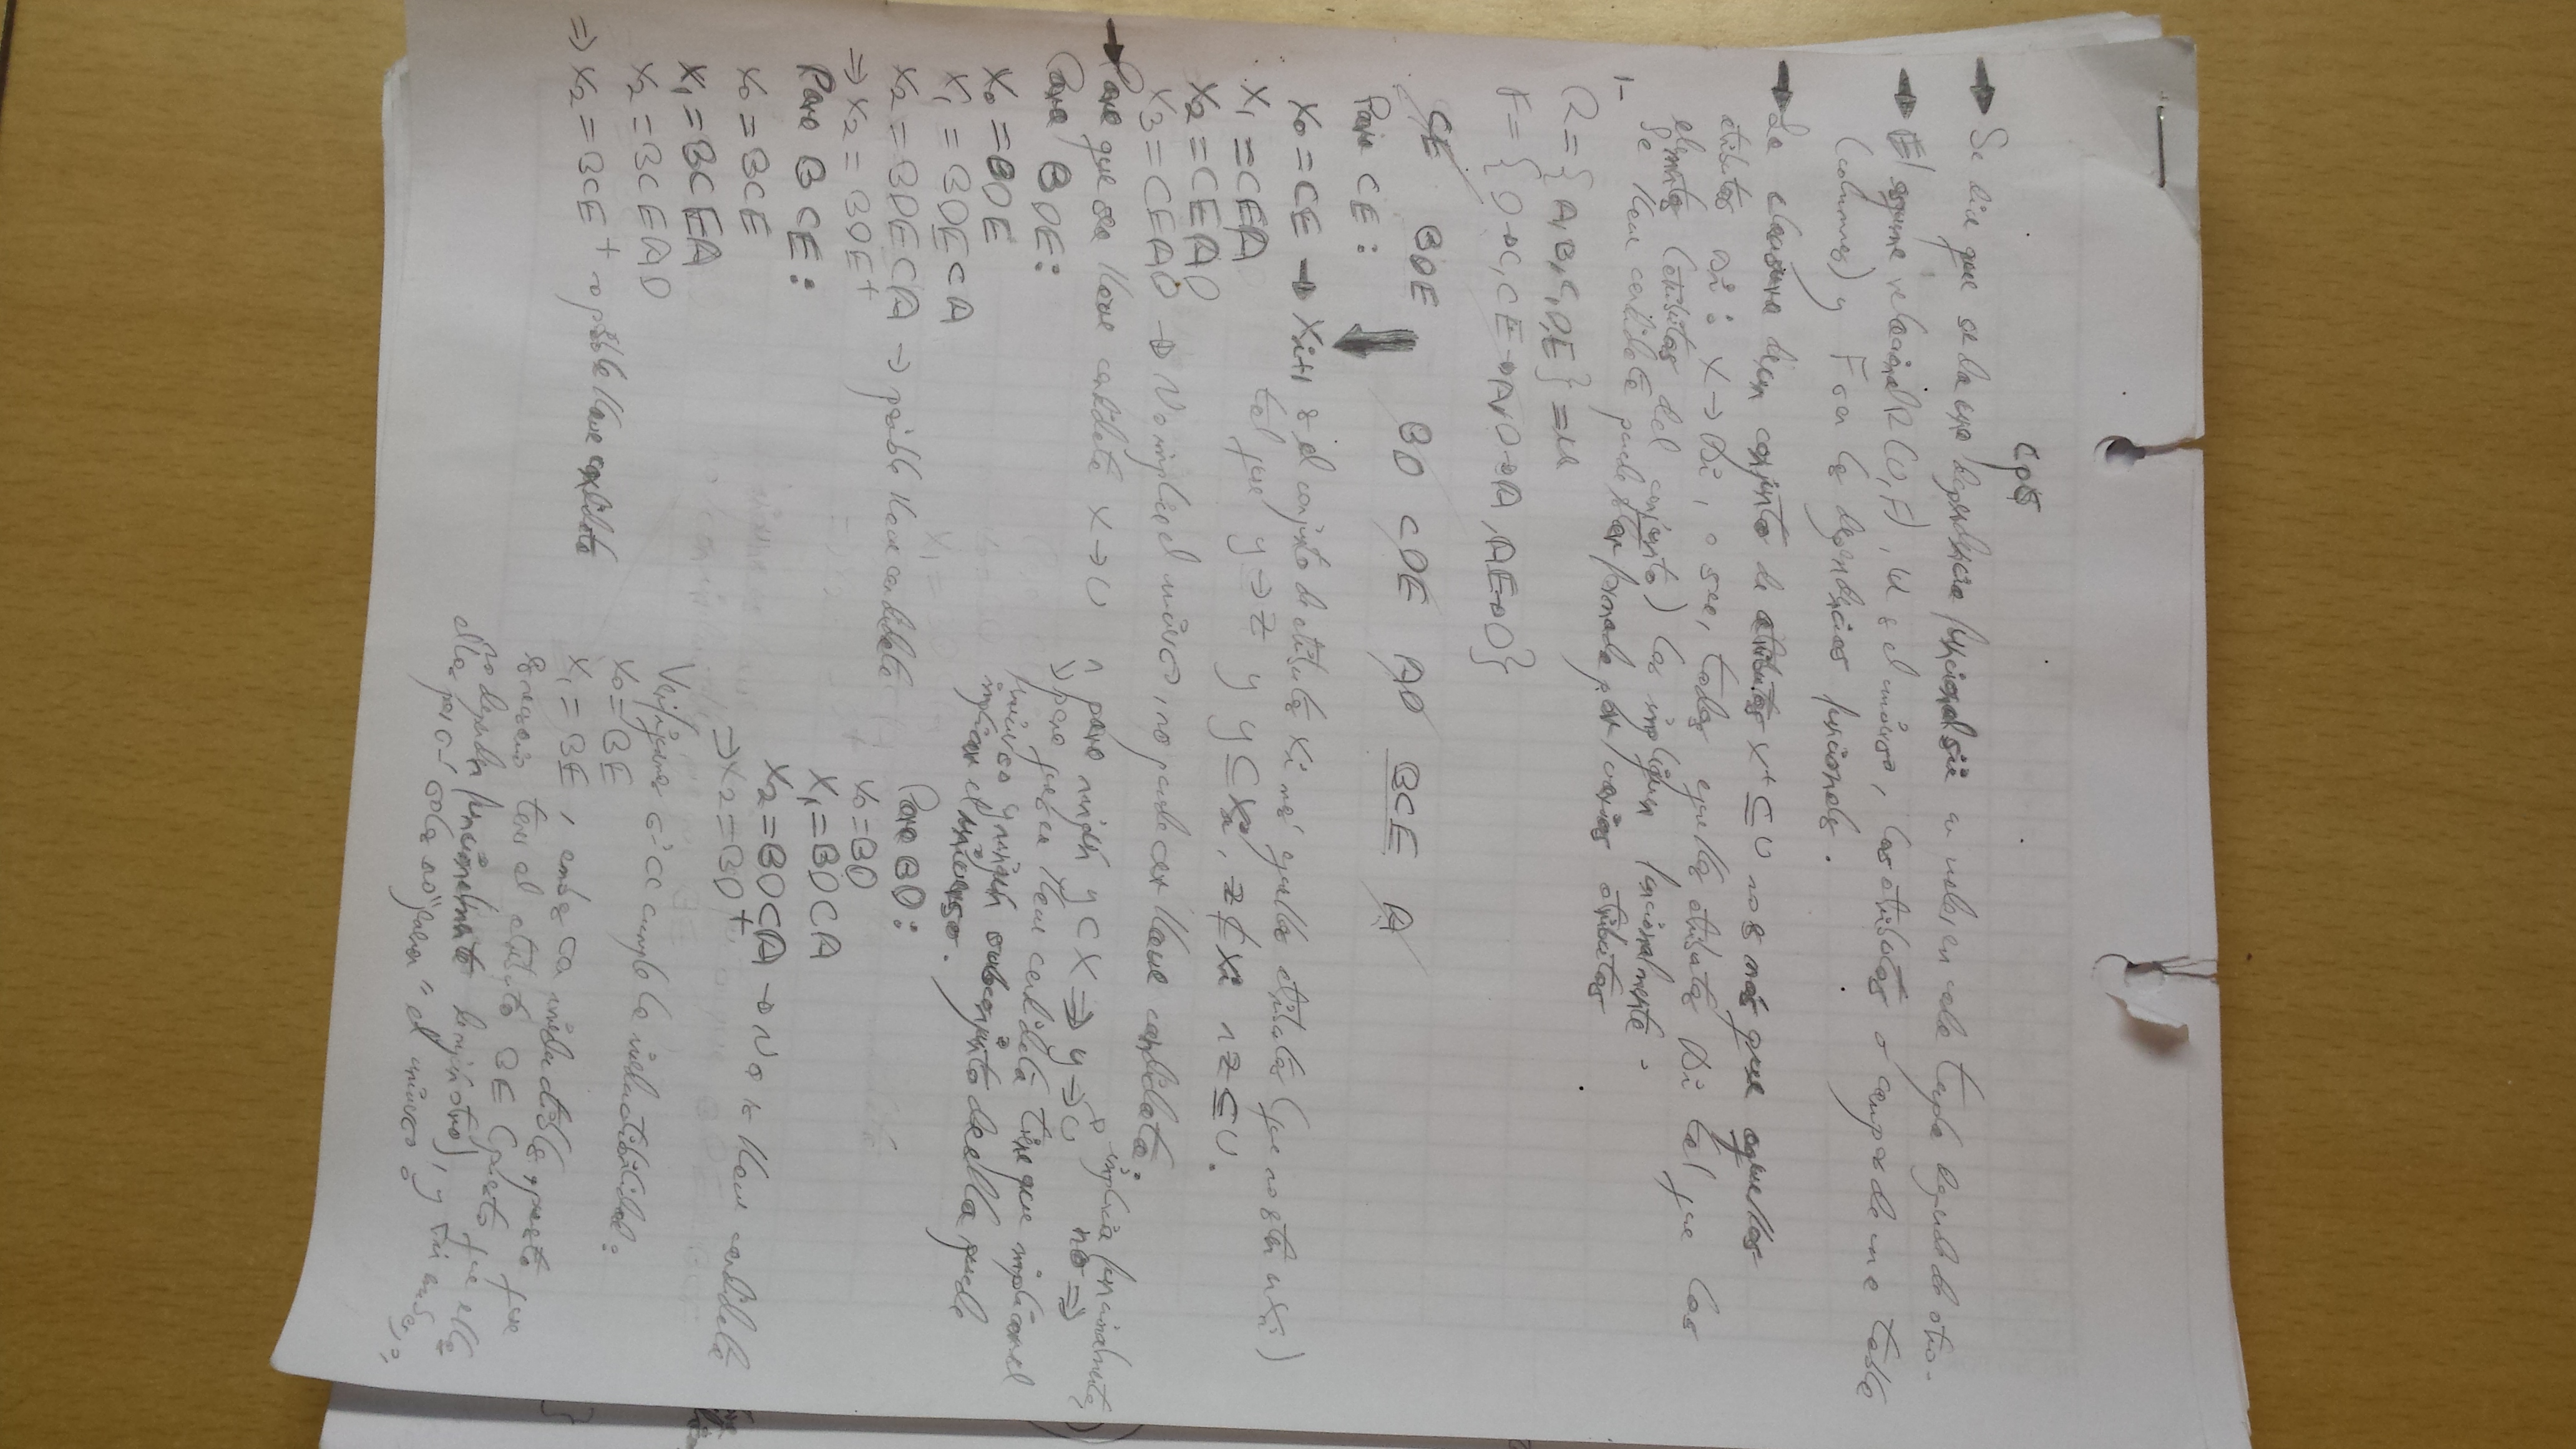 cp5
→ Se dice que se da una dependencia funcional sii un valor en cada tupla depende de otro.
→ El esquema relacional R(U,F), U es el universo, los atributos o campos de una tabla
(columnas) y F son las dependencias funcionales.
→ La clausura de un conjunto de atributos X+ ⊆ U no es más que aquellos
atributos Ai : X → Ai, o sea, todos aquellos atributos Ai tal que los
elementos (atributos del conjunto) los impliquen funcionalmente.
llave candidata puede estar formada por varios atributos
1-
R = {A,B,C,D,E} = U
F = {D→C, CE→A, D→A, AE→D}
CE BDE BD CDE AD BCE A
Para CE:
X0 = CE → Xi+1 es el conjunto de atributos Xi más aquellos atributos (que no están en Xi)
X1 = CEA tal que y → z y y ⊆ Xi, z ⊄ Xi ∧ z ⊆ U.
X2 = CEAD
X3 = CEAD → No implica el universo, no puede ser llave candidata.
→ Para que sea llave candidata X → U ∧ para ningún y ⊂ X ⇒ y → U
implica funcionalmente, no ⇒
para que sea llave candidata tiene que implicar el
universo y ningún subconjunto de ella puede
implicar el universo.
Para BDE:
X0 = BDE
X1 = BDECA
X2 = BDECA → posible llave candidata
⇒ X2 = BDE+
Para BCE:
X0 = BCE
X1 = BCEA
X2 = BCEAD
⇒ X2 = BCE+ → posible llave candidata
Para BD:
X0 = BD
X1 = BDCA
X2 = BDCA → No es llave candidata
⇒ X2 = BD+
Verifiquemos si se cumple la irreductibilidad:
X0 = BE
X1 = BE, ambas son irreductibles, puesto que
es necesario tener el atributo BE (puesto que ellos
no dependen funcionalmente de ningún otro), y sin embargo,
ellos por sí solos no "ganan" el universo